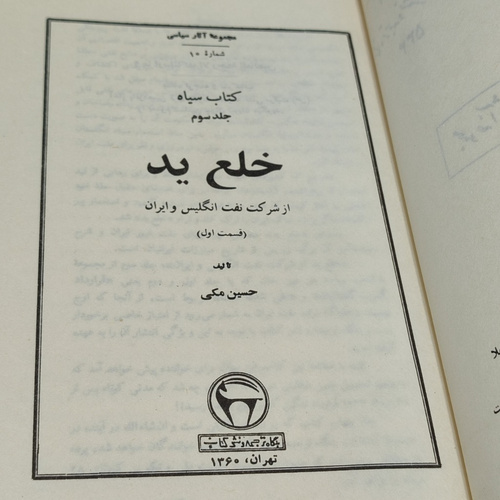 مجموعه آثار سیاسی
شمارهٔ ۱۰
کتاب سیاه
جلد سوم
خلع ید
از شرکت نفت انگلیس و ایران
(قسمت اول)
تالیف
حسین مکی
بنگاه ترجمه و نشر کتاب
تهران، ۱۳۶۰